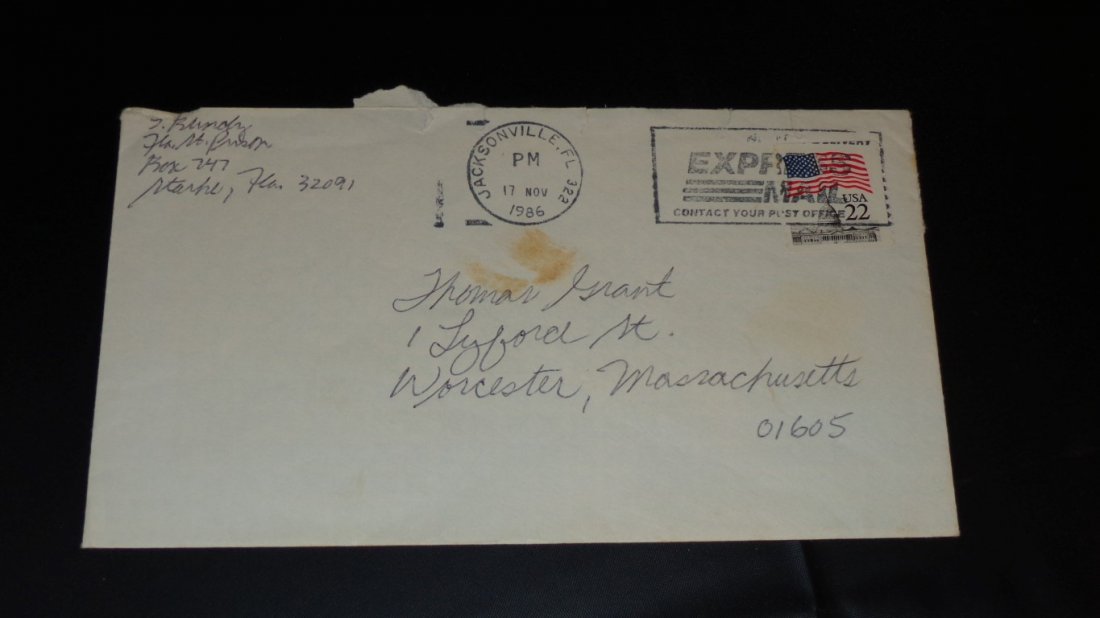 T. Bundy
Fla. St. Prison
Box 747
Starke, Fla. 32091
JACKSONVILLE, FL 322
PM
17 NOV
1986
DELIVERY
EXPRESS
MAIL
CONTACT YOUR POST OFFICE
USA
22
Thomas Grant
1 Lyford St.
Worcester, Massachusetts
01605